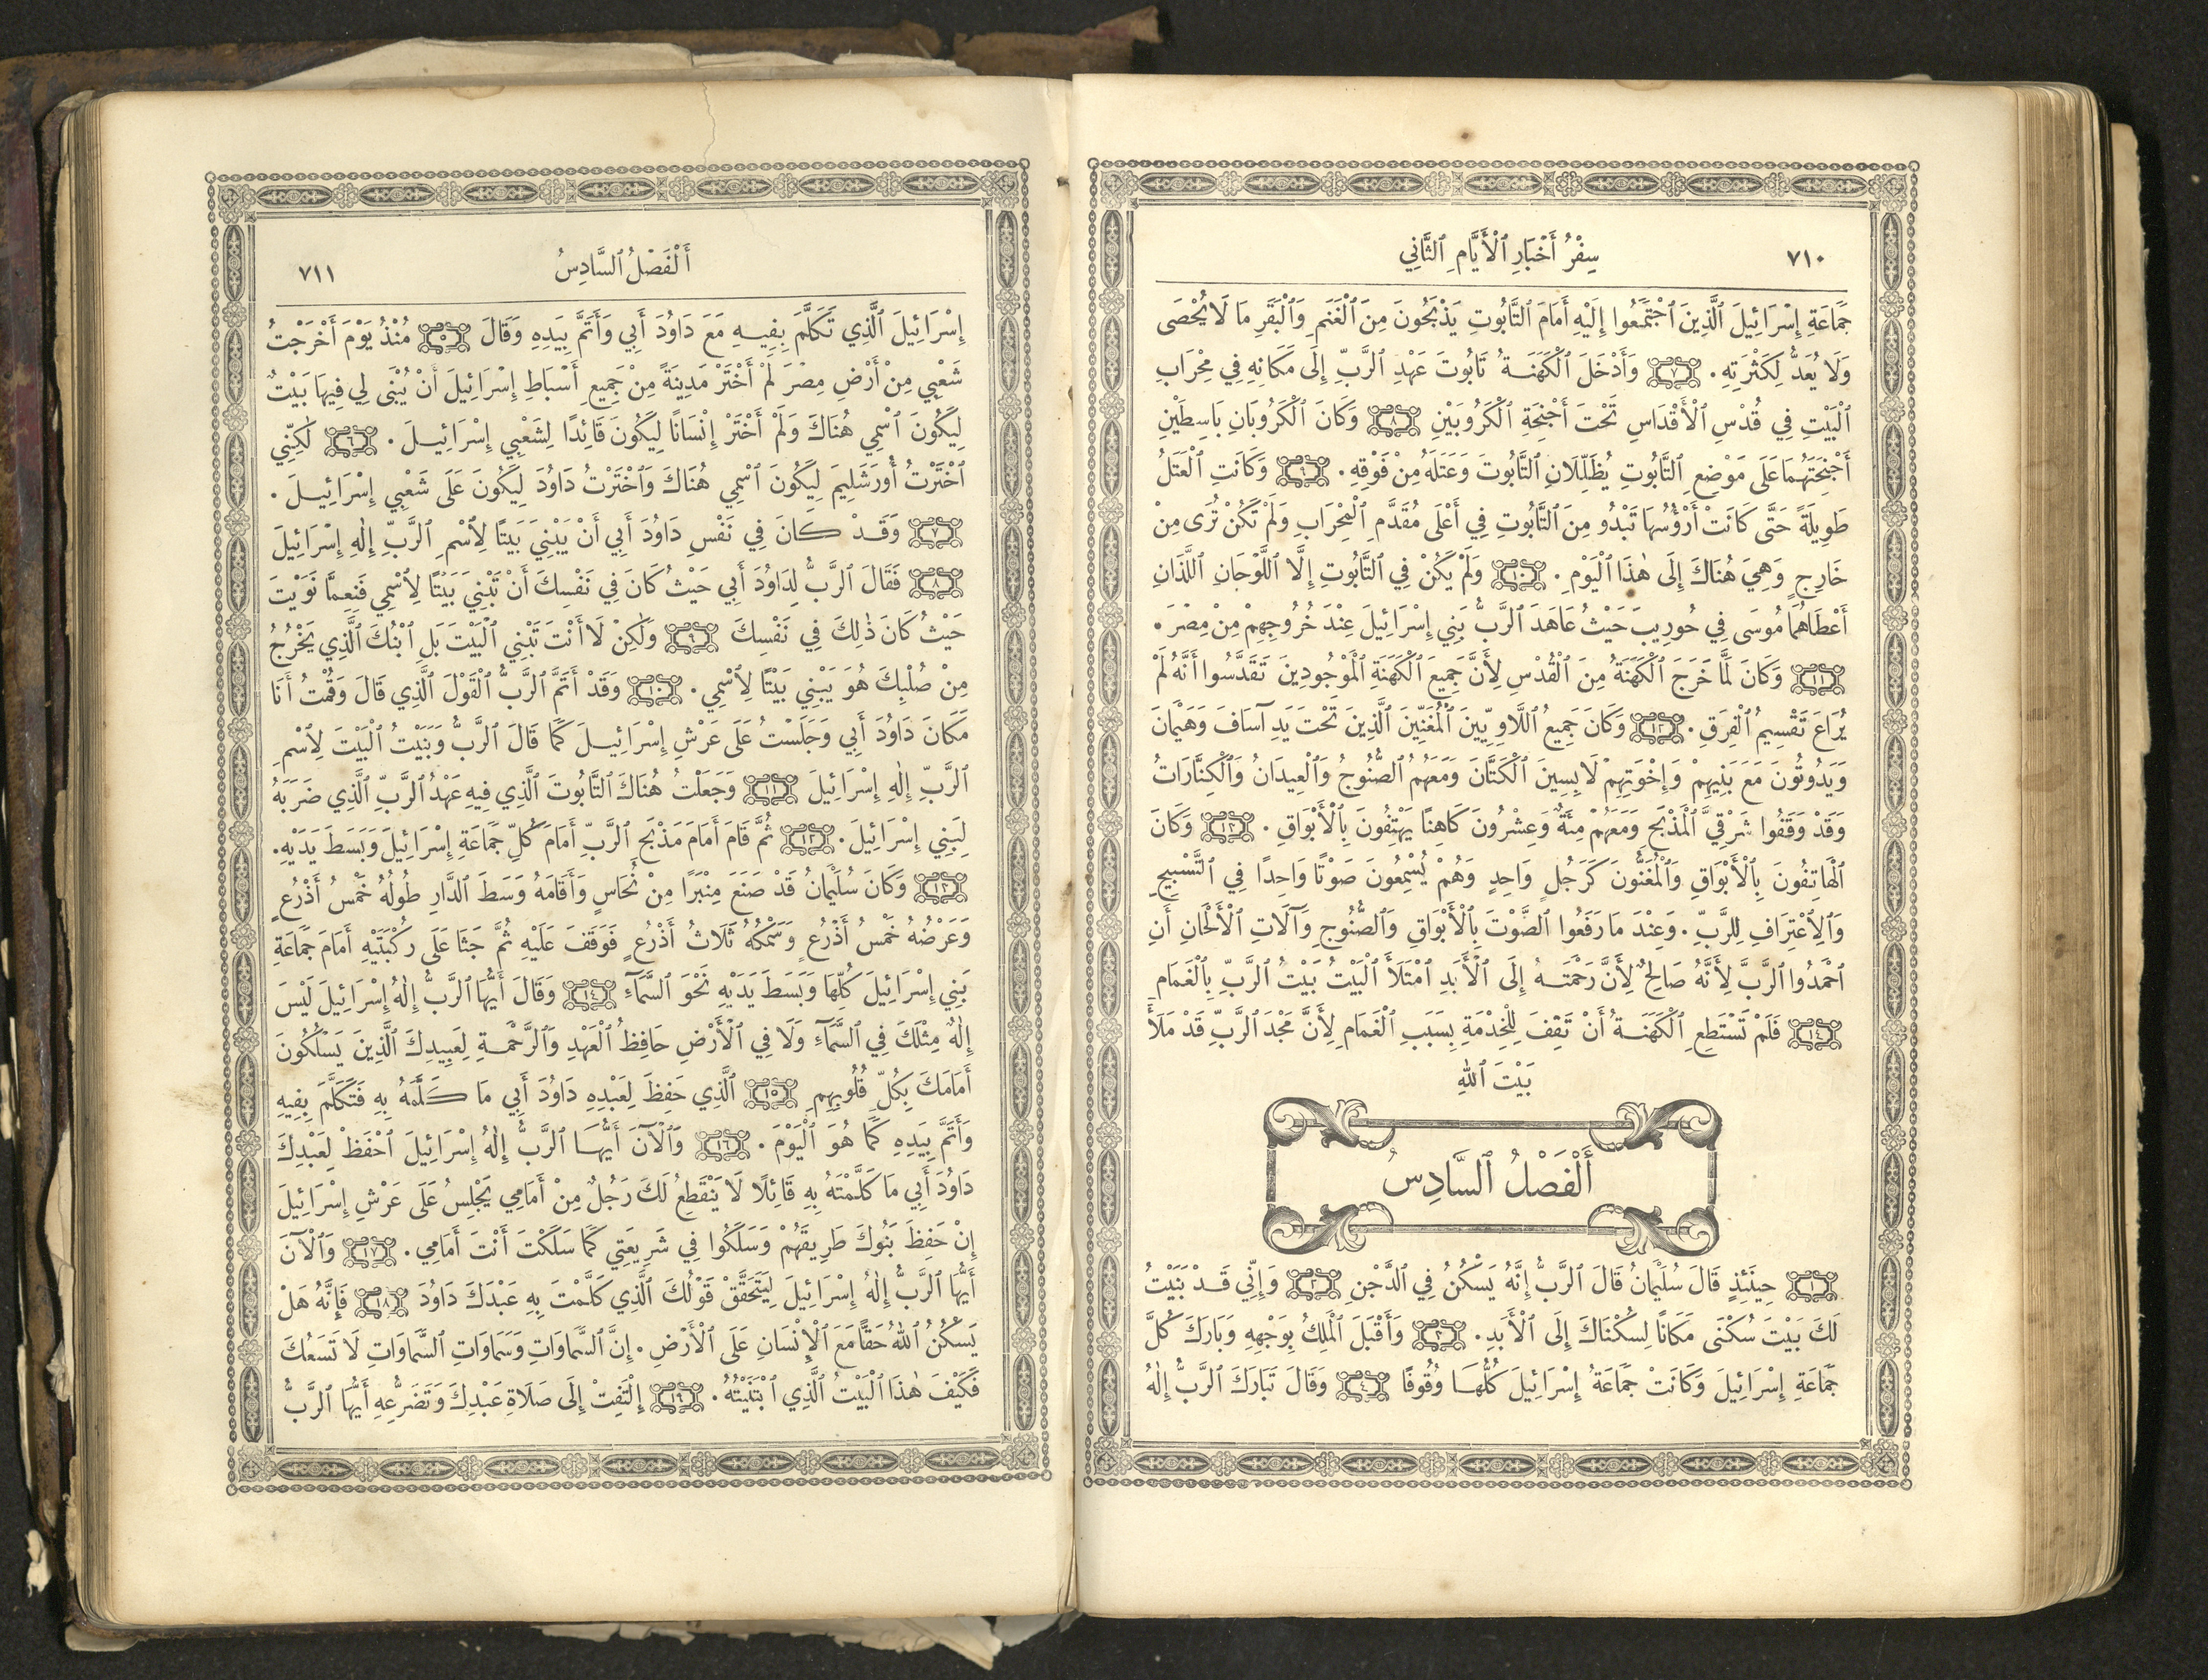 ٧١٠
سِفْرُ أَخْبَارِ ٱلْأَيَّامِ ٱلثَّانِي
جَمَاعَةِ إِسْرَائِيلَ ٱلَّذِينَ ٱجْتَمَعُوا إِلَيْهِ أَمَامَ ٱلتَّابُوتِ يَذْبَحُونَ مِنَ ٱلْغَنَمِ وَٱلْبَقَرِ مَا لَا يُحْصَى
وَلَا يُعَدُّ لِكَثْرَتِهِ. ٧ وَأَدْخَلَ ٱلْكَهَنَةُ تَابُوتَ عَهْدِ ٱلرَّبِّ إِلَى مَكَانِهِ فِي مِحْرَابِ
ٱلْبَيْتِ فِي قُدْسِ ٱلْأَقْدَاسِ تَحْتَ أَجْنِحَةِ ٱلْكَرُوبَيْنِ ٨ وَكَانَ ٱلْكَرُوبَانِ بَاسِطَيْنِ
أَجْنِحَتَهُمَا عَلَى مَوْضِعِ ٱلتَّابُوتِ يُظَلِّلَانِ ٱلتَّابُوتَ وَعَتَلَهُ مِنْ فَوْقِهِ. ٩ وَكَانَتِ ٱلْعَتَلُ
طَوِيلَةً حَتَّى كَانَتْ أَرْؤُسُهَا تَبْدُو مِنَ ٱلتَّابُوتِ فِي أَعْلَى مُقَدَّمِ ٱلْمِحْرَابِ وَلَمْ تَكُنْ تُرَى مِنْ
خَارِجٍ وَهِيَ هُنَاكَ إِلَى هٰذَا ٱلْيَوْمِ. ١٠ وَلَمْ يَكُنْ فِي ٱلتَّابُوتِ إِلَّا ٱللَّوْحَانِ ٱللَّذَانِ
أَعْطَاهُمَا مُوسَى فِي حُورِيبَ حَيْثُ عَاهَدَ ٱلرَّبُّ بَنِي إِسْرَائِيلَ عِنْدَ خُرُوجِهِمْ مِنْ مِصْرَ.
١١ وَكَانَ لَمَّا خَرَجَ ٱلْكَهَنَةُ مِنَ ٱلْقُدْسِ لِأَنَّ جَمِيعَ ٱلْكَهَنَةِ ٱلْمَوْجُودِينَ تَقَدَّسُوا أَنَّهُ لَمْ
يُرَاعَ تَقْسِيمُ ٱلْفِرَقِ. ١٢ وَكَانَ جَمِيعُ ٱللَّاوِيِّينَ ٱلْمُغَنِّينَ ٱلَّذِينَ تَحْتَ يَدِ آسَافَ وَهَيْمَانَ
وَيَدُوتُونَ مَعَ بَنِيهِمْ وَإِخْوَتِهِمْ لَابِسِينَ ٱلْكَتَّانَ وَمَعَهُمُ ٱلصُّنُوجُ وَٱلْعِيدَانُ وَٱلْكِنَّارَاتُ
وَقَدْ وَقَفُوا شَرْقِيَّ ٱلْمَذْبَحِ وَمَعَهُمْ مِئَةٌ وَعِشْرُونَ كَاهِنًا يَهْتِفُونَ بِٱلْأَبْوَاقِ. ١٣ وَكَانَ
ٱلْهَاتِفُونَ بِٱلْأَبْوَاقِ وَٱلْمُغَنُّونَ كَرَجُلٍ وَاحِدٍ وَهُمْ يُسْمِعُونَ صَوْتًا وَاحِدًا فِي ٱلتَّسْبِيحِ
وَٱلِٱعْتِرَافِ لِلرَّبِّ. وَعِنْدَ مَا رَفَعُوا ٱلصَّوْتَ بِٱلْأَبْوَاقِ وَٱلصُّنُوجِ وَآلَاتِ ٱلْأَلْحَانِ أَنِ
ٱحْمَدُوا ٱلرَّبَّ لِأَنَّهُ صَالِحٌ لِأَنَّ رَحْمَتَهُ إِلَى ٱلْأَبَدِ ٱمْتَلَأَ ٱلْبَيْتُ بَيْتُ ٱلرَّبِّ بِٱلْغَمَامِ
١٤ فَلَمْ تَسْتَطِعِ ٱلْكَهَنَةُ أَنْ تَقِفَ لِلْخِدْمَةِ بِسَبَبِ ٱلْغَمَامِ لِأَنَّ مَجْدَ ٱلرَّبِّ قَدْ مَلَأَ
بَيْتَ ٱللّٰهِ
أَلْفَصْلُ ٱلسَّادِسُ
١ حِينَئِذٍ قَالَ سُلَيْمَانُ قَالَ ٱلرَّبُّ إِنَّهُ يَسْكُنُ فِي ٱلدَّجْنِ ٢ وَإِنِّي قَدْ بَنَيْتُ
لَكَ بَيْتَ سُكْنَى مَكَانًا لِسُكْنَاكَ إِلَى ٱلْأَبَدِ. ٣ وَأَقْبَلَ ٱلْمَلِكُ بِوَجْهِهِ وَبَارَكَ كُلَّ
جَمَاعَةِ إِسْرَائِيلَ وَكَانَتْ جَمَاعَةُ إِسْرَائِيلَ كُلُّهَا وُقُوفًا ٤ وَقَالَ تَبَارَكَ ٱلرَّبُّ إِلٰهُ
أَلْفَصْلُ ٱلسَّادِسُ
٧١١
إِسْرَائِيلَ ٱلَّذِي تَكَلَّمَ بِفِيهِ مَعَ دَاوُدَ أَبِي وَأَتَمَّ بِيَدِهِ وَقَالَ ٥ مُنْذُ يَوْمَ أَخْرَجْتُ
شَعْبِي مِنْ أَرْضِ مِصْرَ لَمْ أَخْتَرْ مَدِينَةً مِنْ جَمِيعِ أَسْبَاطِ إِسْرَائِيلَ أَنْ يُبْنَى لِي فِيهَا بَيْتٌ
لِيَكُونَ ٱسْمِي هُنَاكَ وَلَمْ أَخْتَرْ إِنْسَانًا لِيَكُونَ قَائِدًا لِشَعْبِي إِسْرَائِيلَ. ٦ لٰكِنِّي
ٱخْتَرْتُ أُورَشَلِيمَ لِيَكُونَ ٱسْمِي هُنَاكَ وَٱخْتَرْتُ دَاوُدَ لِيَكُونَ عَلَى شَعْبِي إِسْرَائِيلَ.
٧ وَقَدْ كَانَ فِي نَفْسِ دَاوُدَ أَبِي أَنْ يَبْنِيَ بَيْتًا لِٱسْمِ ٱلرَّبِّ إِلٰهِ إِسْرَائِيلَ
٨ فَقَالَ ٱلرَّبُّ لِدَاوُدَ أَبِي حَيْثُ كَانَ فِي نَفْسِكَ أَنْ تَبْنِيَ بَيْتًا لِٱسْمِي فَنِعِمَّا نَوَيْتَ
حَيْثُ كَانَ ذٰلِكَ فِي نَفْسِكَ ٩ وَلٰكِنْ لَا أَنْتَ تَبْنِي ٱلْبَيْتَ بَلِ ٱبْنُكَ ٱلَّذِي يَخْرُجُ
مِنْ صُلْبِكَ هُوَ يَبْنِي بَيْتًا لِٱسْمِي. ١٠ وَقَدْ أَتَمَّ ٱلرَّبُّ ٱلْقَوْلَ ٱلَّذِي قَالَ وَقُمْتُ أَنَا
مَكَانَ دَاوُدَ أَبِي وَجَلَسْتُ عَلَى عَرْشِ إِسْرَائِيلَ كَمَا قَالَ ٱلرَّبُّ وَبَنَيْتُ ٱلْبَيْتَ لِٱسْمِ
ٱلرَّبِّ إِلٰهِ إِسْرَائِيلَ ١١ وَجَعَلْتُ هُنَاكَ ٱلتَّابُوتَ ٱلَّذِي فِيهِ عَهْدُ ٱلرَّبِّ ٱلَّذِي ضَرَبَهُ
لِبَنِي إِسْرَائِيلَ. ١٢ ثُمَّ قَامَ أَمَامَ مَذْبَحِ ٱلرَّبِّ أَمَامَ كُلِّ جَمَاعَةِ إِسْرَائِيلَ وَبَسَطَ يَدَيْهِ.
١٣ وَكَانَ سُلَيْمَانُ قَدْ صَنَعَ مِنْبَرًا مِنْ نُحَاسٍ وَأَقَامَهُ وَسَطَ ٱلدَّارِ طُولُهُ خَمْسُ أَذْرُعٍ
وَعَرْضُهُ خَمْسُ أَذْرُعٍ وَسَمْكُهُ ثَلَاثُ أَذْرُعٍ فَوَقَفَ عَلَيْهِ ثُمَّ جَثَا عَلَى رُكْبَتَيْهِ أَمَامَ جَمَاعَةِ
بَنِي إِسْرَائِيلَ كُلِّهَا وَبَسَطَ يَدَيْهِ نَحْوَ ٱلسَّمَآءِ ١٤ وَقَالَ أَيُّهَا ٱلرَّبُّ إِلٰهُ إِسْرَائِيلَ لَيْسَ
إِلٰهٌ مِثْلَكَ فِي ٱلسَّمَآءِ وَلَا فِي ٱلْأَرْضِ حَافِظُ ٱلْعَهْدِ وَٱلرَّحْمَةِ لِعَبِيدِكَ ٱلَّذِينَ يَسْلُكُونَ
أَمَامَكَ بِكُلِّ قُلُوبِهِمِ ١٥ ٱلَّذِي حَفِظَ لِعَبْدِهِ دَاوُدَ أَبِي مَا كَلَّمَهُ بِهِ فَتَكَلَّمَ بِفِيهِ
وَأَتَمَّ بِيَدِهِ كَمَا هُوَ ٱلْيَوْمَ. ١٦ وَٱلْآنَ أَيُّهَا ٱلرَّبُّ إِلٰهُ إِسْرَائِيلَ ٱحْفَظْ لِعَبْدِكَ
دَاوُدَ أَبِي مَا كَلَّمْتَهُ بِهِ قَائِلًا لَا يَنْقَطِعُ لَكَ رَجُلٌ مِنْ أَمَامِي يَجْلِسُ عَلَى عَرْشِ إِسْرَائِيلَ
إِنْ حَفِظَ بَنُوكَ طَرِيقَهُمْ وَسَلَكُوا فِي شَرِيعَتِي كَمَا سَلَكْتَ أَنْتَ أَمَامِي. ١٧ وَٱلْآنَ
أَيُّهَا ٱلرَّبُّ إِلٰهُ إِسْرَائِيلَ لِيَتَحَقَّقْ قَوْلُكَ ٱلَّذِي كَلَّمْتَ بِهِ عَبْدَكَ دَاوُدَ ١٨ فَإِنَّهُ هَلْ
يَسْكُنُ ٱللّٰهُ حَقًّا مَعَ ٱلْإِنْسَانِ عَلَى ٱلْأَرْضِ. إِنَّ ٱلسَّمَاوَاتِ وَسَمَاوَاتِ ٱلسَّمَاوَاتِ لَا تَسَعُكَ
فَكَيْفَ هٰذَا ٱلْبَيْتُ ٱلَّذِي ٱبْتَنَيْتُهُ. ١٩ إِلْتَفِتْ إِلَى صَلَاةِ عَبْدِكَ وَتَضَرُّعِهِ أَيُّهَا ٱلرَّبُّ